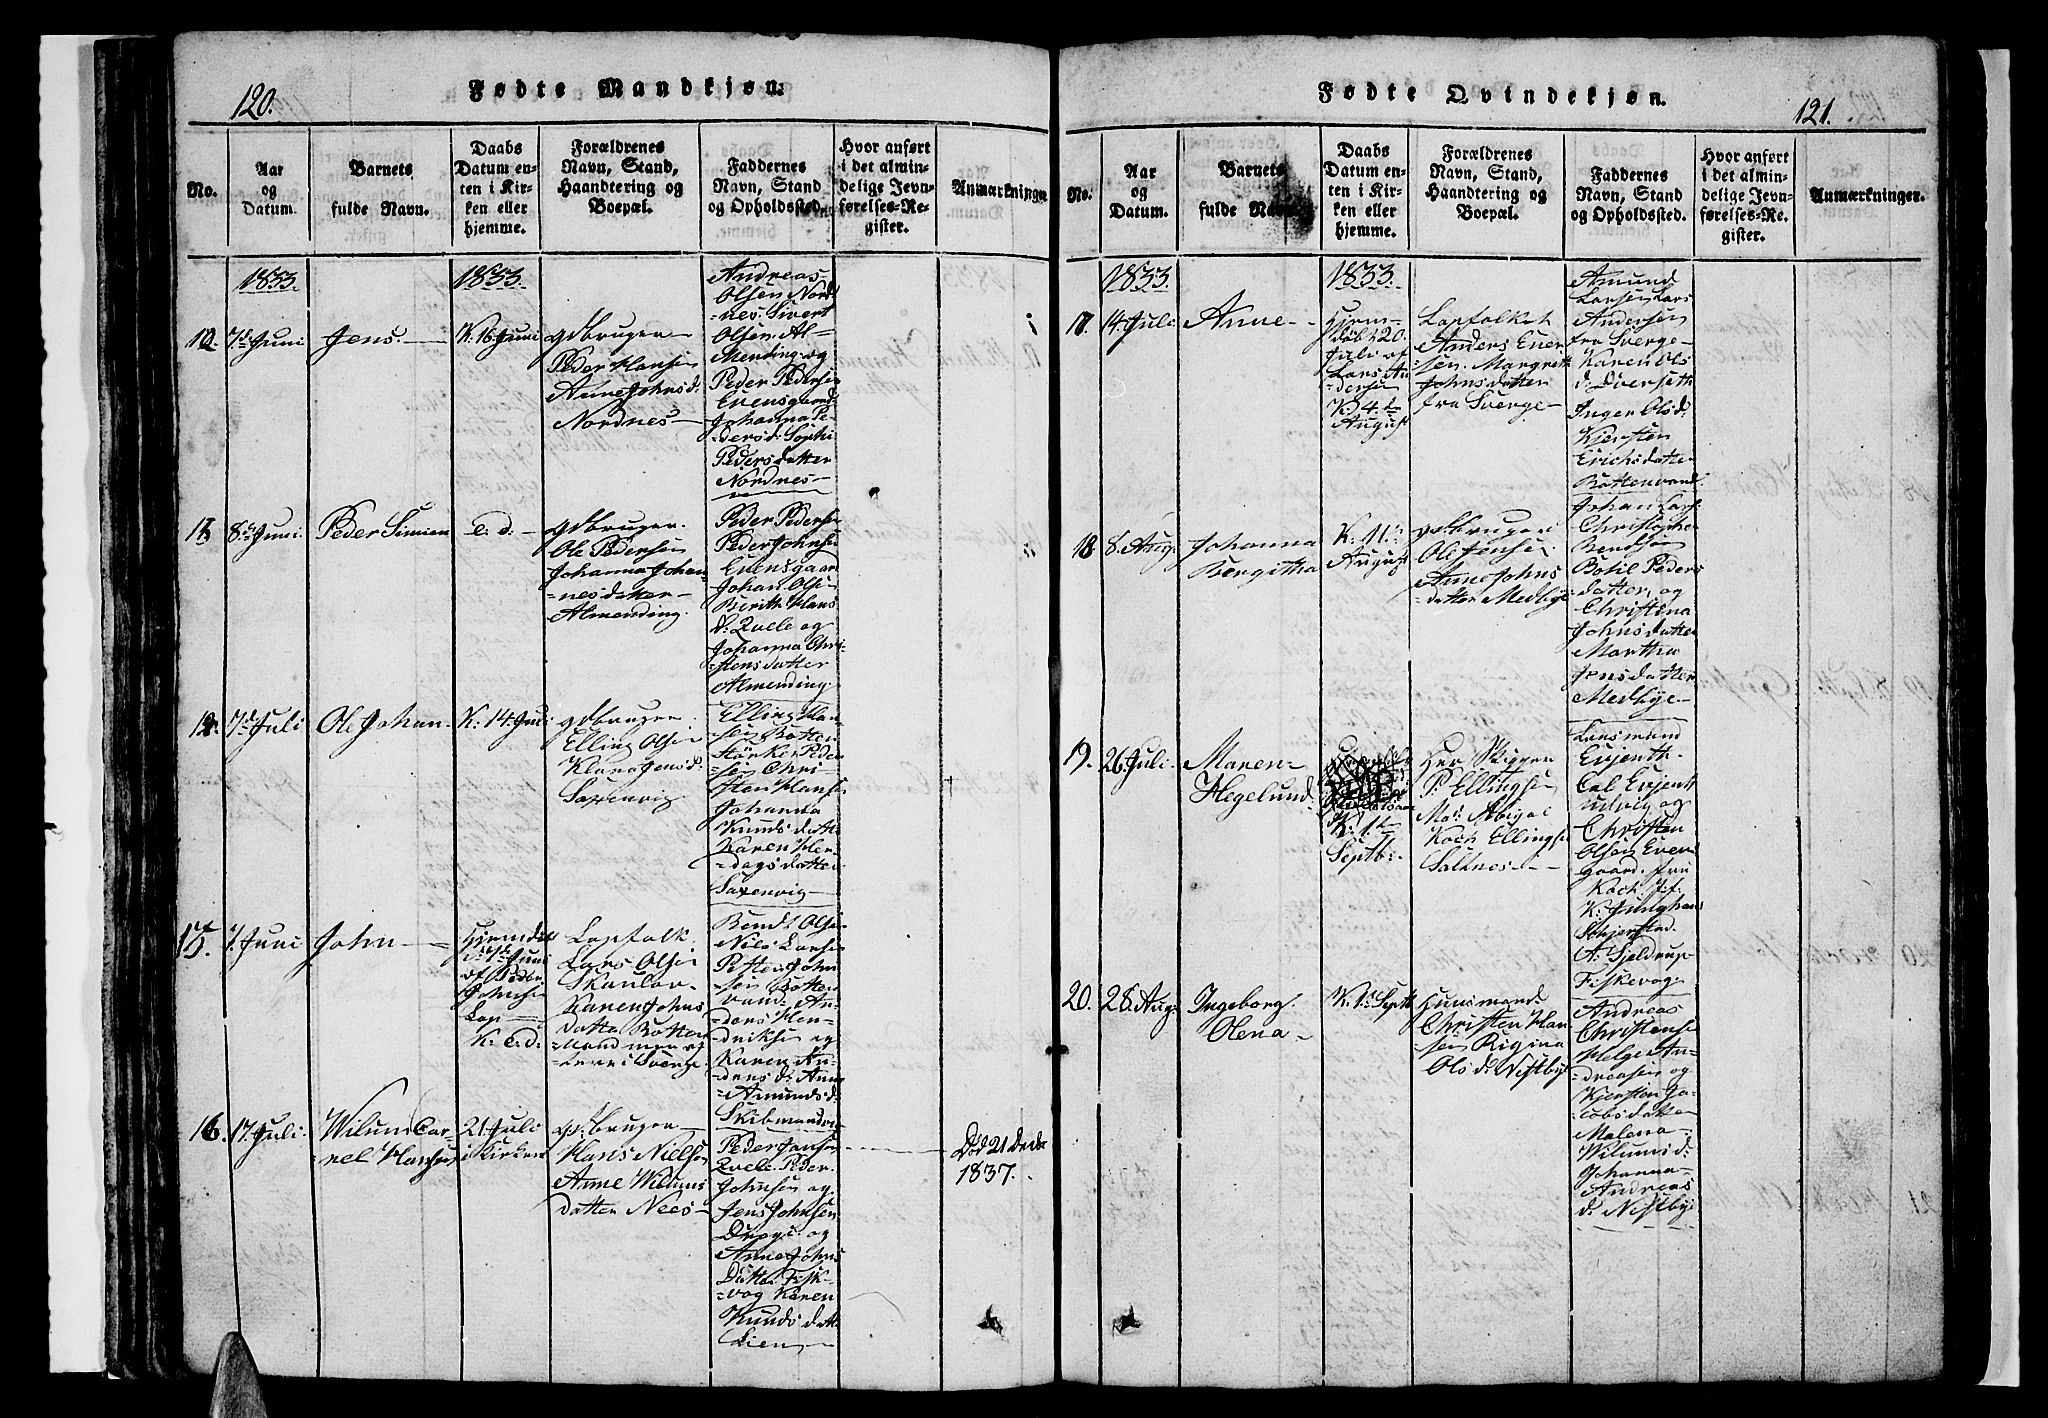 120.
Fødte Mandkjøn.
No.
Aar
og
Datum.
Barnets
fulde Navn.
Daabs
Datum en-
ten i Kir-
ken eller
hjemme.
Forældrenes
Navn, Stand,
Haandtering og
Boepæl.
Faddernes
Navn, Stand
og Opholdssted.
Hvor anført
i det almin-
delige Jevn-
førelses-Re-
gister.
Anmærkninger.
1833.
1833.
12.
7d Juni
Jens.
K. 16 Juni
gdbruger
Peder Hansen
Anne Johnsd:
Nordnes
Andreas
Olsen Nord-
nes. Sivert
Olsen Al-
Mending og
Peder Pedersen
Evensgaard
Johanna Pe-
dersd: Sophi
Pedersdatter
Nordnes
13
8de Juni
Peder Simien
e. d.
gdbruger.
Ole Pedersen
Johanna Johan-
nesdatter
Almending.
Peder Pedersen
Peder Johnsen
Evensgaard
Johan Olsen
Berith Hans
d: Qvele og
Johanna Chri-
stensdatter
Almending
14.
7d Juli
Ole Johan
K. 14 Juli
gdbruger
Elling Olsen
Klara Jensd:
Saxenvig
Elling Han-
sen Botten
Stärker Peder
sen Chri-
sten Hansen
Johanna
Knudsdatter
Karen Her-
dagsdatter
Saxenvig
15.
7. Juni
John
Hjemdøbt
d. 7de Juni
af Peder
Johnsen
Lap
K. e. d.
Lapfolk
Lars Olsen
Skaulov
Karen Johns
datter Botten
vand
i Sverge.
Bendt Olsen
Nils Larsen
Peter John
sen Botten
vand. An-
ders Hen-
driksen og
Karen An-
dersd: Anne
Amundsd:
Skibmandvig
16.
17. Juli
Wilum Cor-
nel Hansen
21 Juli
i Kirken
gdbruger
Hans Nielsen
Anne Wilums
datter Nees
Peder Jonsen
Qvele. Peder
Johnsen og
Jens Johnsen
Drage og
Anne Johns
Datter Fisk-
vog Karen
Knudsdatter
Lien
Død 21 Decbr
1837.
Fødte Qvindekjøn.
121.
No.
Aar
og
Datum.
Barnets
fulde Navn.
Daabs
Datum en-
ten i Kir-
ken eller
hjemme.
Forældrenes
Navn, Stand,
Haandtering og
Boepæl.
Faddernes
Navn, Stand
og Opholdssted.
Hvor anført
i det almin-
delige Jevn-
førelses-Re-
gister.
Anmærkninger.
1833.
1833.
17.
14 Juli
Anne
Hjem-
døbt 20.
Juli af
Lars An-
dersen
K. 4de
August
Lapfolket
Anders Ener-
sen. Margreth
Johnsdatter
fra Sverge
Amund
Larsen Lars
Andersen
fra Sverge
Karen Ols
d: Øverseth
Inger Olsd:
Kjersten
Erichsdatter
Bottenvand
18
8. Aug.
Johanna
Bergitha
K. 11te
August
gdbruger
Ole Jensen
Anne Johns
datter Medbye
Johan Lars.
Christopher
Bendtsen
Botil Peders
datter, og
Christina
Johnsdatter
Martha
Jensdatter
Medbye
19.
26 Juli.
Maren
Hegelund
K. 1te
Septb:
Her Skipper
P. Ellingsen
Mad: Abigal
Koch Ellingsen
Saltnes
Lensmand
Evjenth.
Cal Evjenth
udvig og
Christen
Olsen Evens
gaard. fru
Koch. Jf:
K: Junghans
Skjerstad.
A. Sjeldrup
Fiskevog
20.
28. Aug.
Ingeborg
Olena
K. 1te Septb
Huusmand:
Christen Han
sen Rigina
Olsd: Nistbye
Andreas
Christensen
Helge An-
dreasen og
Kjersten Ja-
cobsdatter
Malena
Wilumsd:
Johanna
Andreas
d: Nistbye